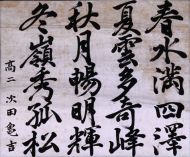 春水満四澤
夏雲多奇峰
秋月暢明輝
冬嶺秀孤松
高二 次田亀吉